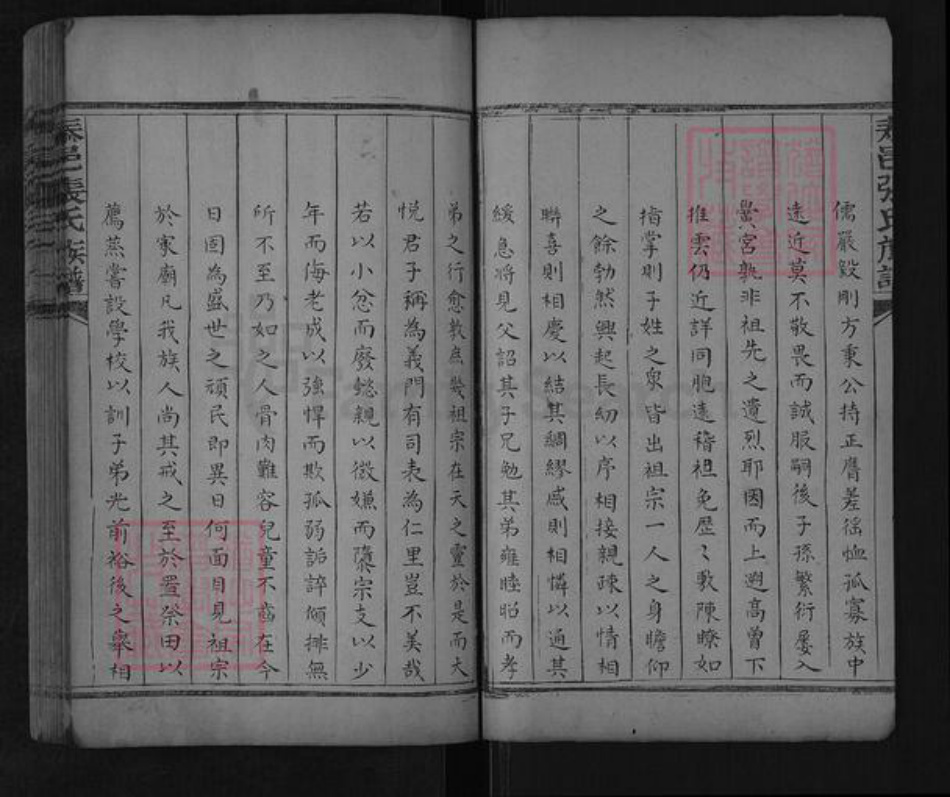 儒嚴毅剛方秉公持正膺差徭恤孤寡族中
遠近莫不敬畏而誠服嗣後子孫繁衍屢入
黌宮孰非祖先之遺烈耶因而上遡高曾下
推雲仍近詳同胞遠稽袒免歷歷敷陳瞭如
指掌則子姓之衆皆出祖宗一人之身瞻仰
之餘勃然興起長幼以序相接親疎以情相
聯喜則相慶以結其綢繆慼則相憐以通其
緩急將見父詔其子兄勉其弟雍睦昭而孝
弟之行愈敦庶幾祖宗在天之靈於是而大
悅君子稱為義門有司表為仁里豈不美哉
若以小忿而廢懿親以微嫌而隳宗支以少
年而侮老成以強悍而欺孤弱詬誶傾排無
所不至乃如之人骨肉難容兒童不啻在今
日固為盛世之頑民即異日何面目見祖宗
於家廟凡我族人尚其戒之至於置祭田以
薦烝嘗設學校以訓子弟光前裕後之舉相
邑張氏族譜